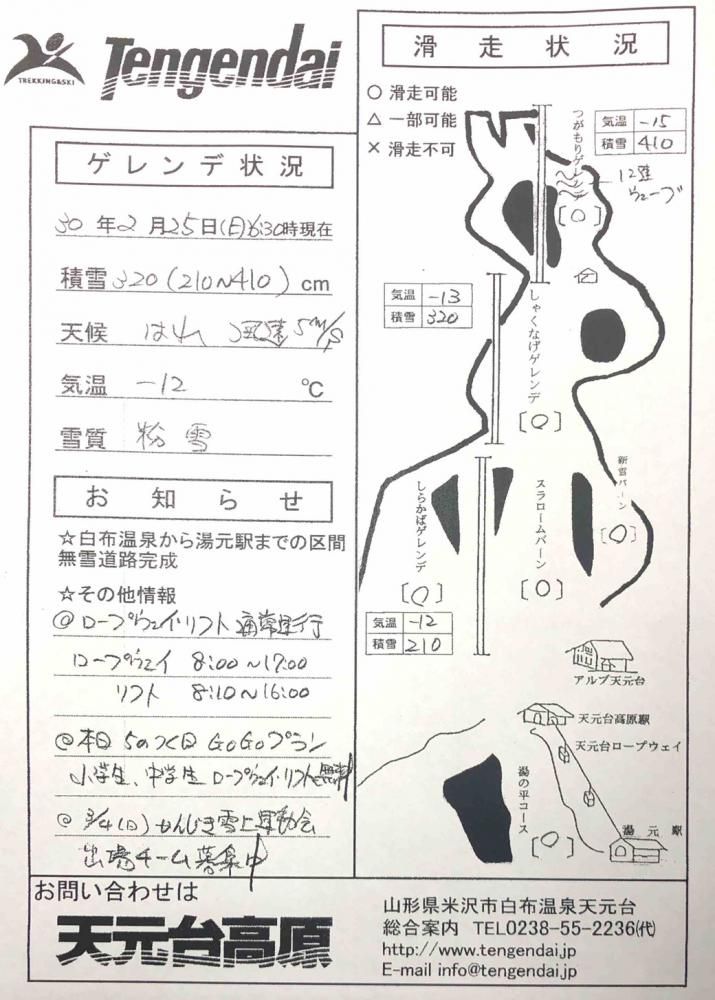 TREKKING&SKI
Tengendai
ゲレンデ状況
30年2月25日(日)6:30時現在
積雪 320(210~410)cm
天候 はれ 風速5m/s
気温 -12 ℃
雪質 粉雪
お知らせ
☆白布温泉から湯元駅までの区間
無雪道路完成
☆その他情報
@ロープウェイ・リフト 通常運行
ロープウェイ 8:00~17:00
リフト 8:10~16:00
@本日 5のつく日 GoGoプラン
小学生、中学生 ロープウェイ・リフト無料
@3/4(日)かんじき雪上運動会
出場チーム募集中
滑走状況
○ 滑走可能
△ 一部可能
× 滑走不可
気温 -15
積雪 410
つがもりゲレンデ
[○]
12連
ウェーブ
気温 -13
積雪 320
しゃくなげゲレンデ
[○]
しらかばゲレンデ
[○]
スラロームバーン
[○]
新雪バーン
[○]
気温 -12
積雪 210
アルブ天元台
天元台高原駅
天元台ロープウェイ
湯の平コース
[○]
湯元駅
お問い合わせは
天元台高原
山形県米沢市白布温泉天元台
総合案内 TEL0238-55-2236㈹
http://www.tengendai.jp
E-mail info@tengendai.jp